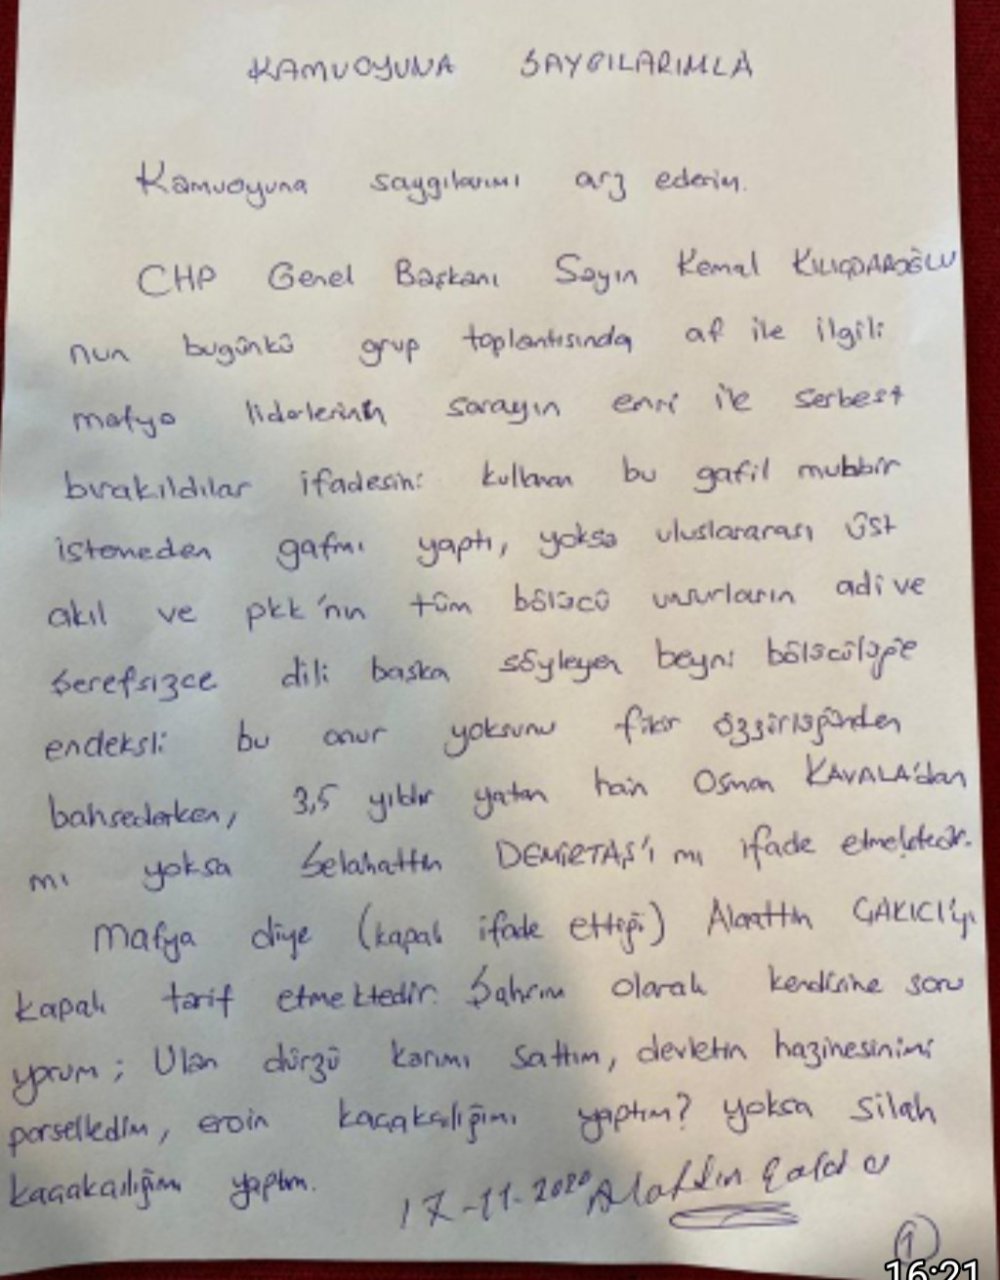 KAMUOYUNA SAYGILARIMLA
Kamuoyuna saygılarımı arz ederim.
CHP Genel Başkanı Sayın Kemal KILIÇDAROĞLU
nun bugünkü grup toplantısında af ile ilgili
mafya liderlerinin sarayın emri ile serbest
bırakıldılar ifadesini kullanan bu gafil muhbir
istemeden gafmı yaptı, yoksa uluslararası üst
akıl ve pkk'nın tüm bölücü unsurların adi ve
şerefsizce dili başka söyleyen beyni bölücülüğe
endeksli bu onur yoksunu fikir özgürlüğünden
bahsederken, 3,5 yıldır yatan hain Osman KAVALA'dan
mı yoksa Selahattin DEMİRTAŞ'ı mı ifade etmektedir.
Mafya diye (kapalı ifade ettiği) Alaattin ÇAKICI'yı
kapalı tarif etmektedir. Şahsım olarak kendisine soru
yorum; Ulan dürzü karımı sattım, devletin hazinesinimi
porselledim, eroin kaçakcılığımı yaptım? yoksa silah
kaçakcılığımı yaptım.
17-11-2020 Alattin Çakıcı
1
16:21